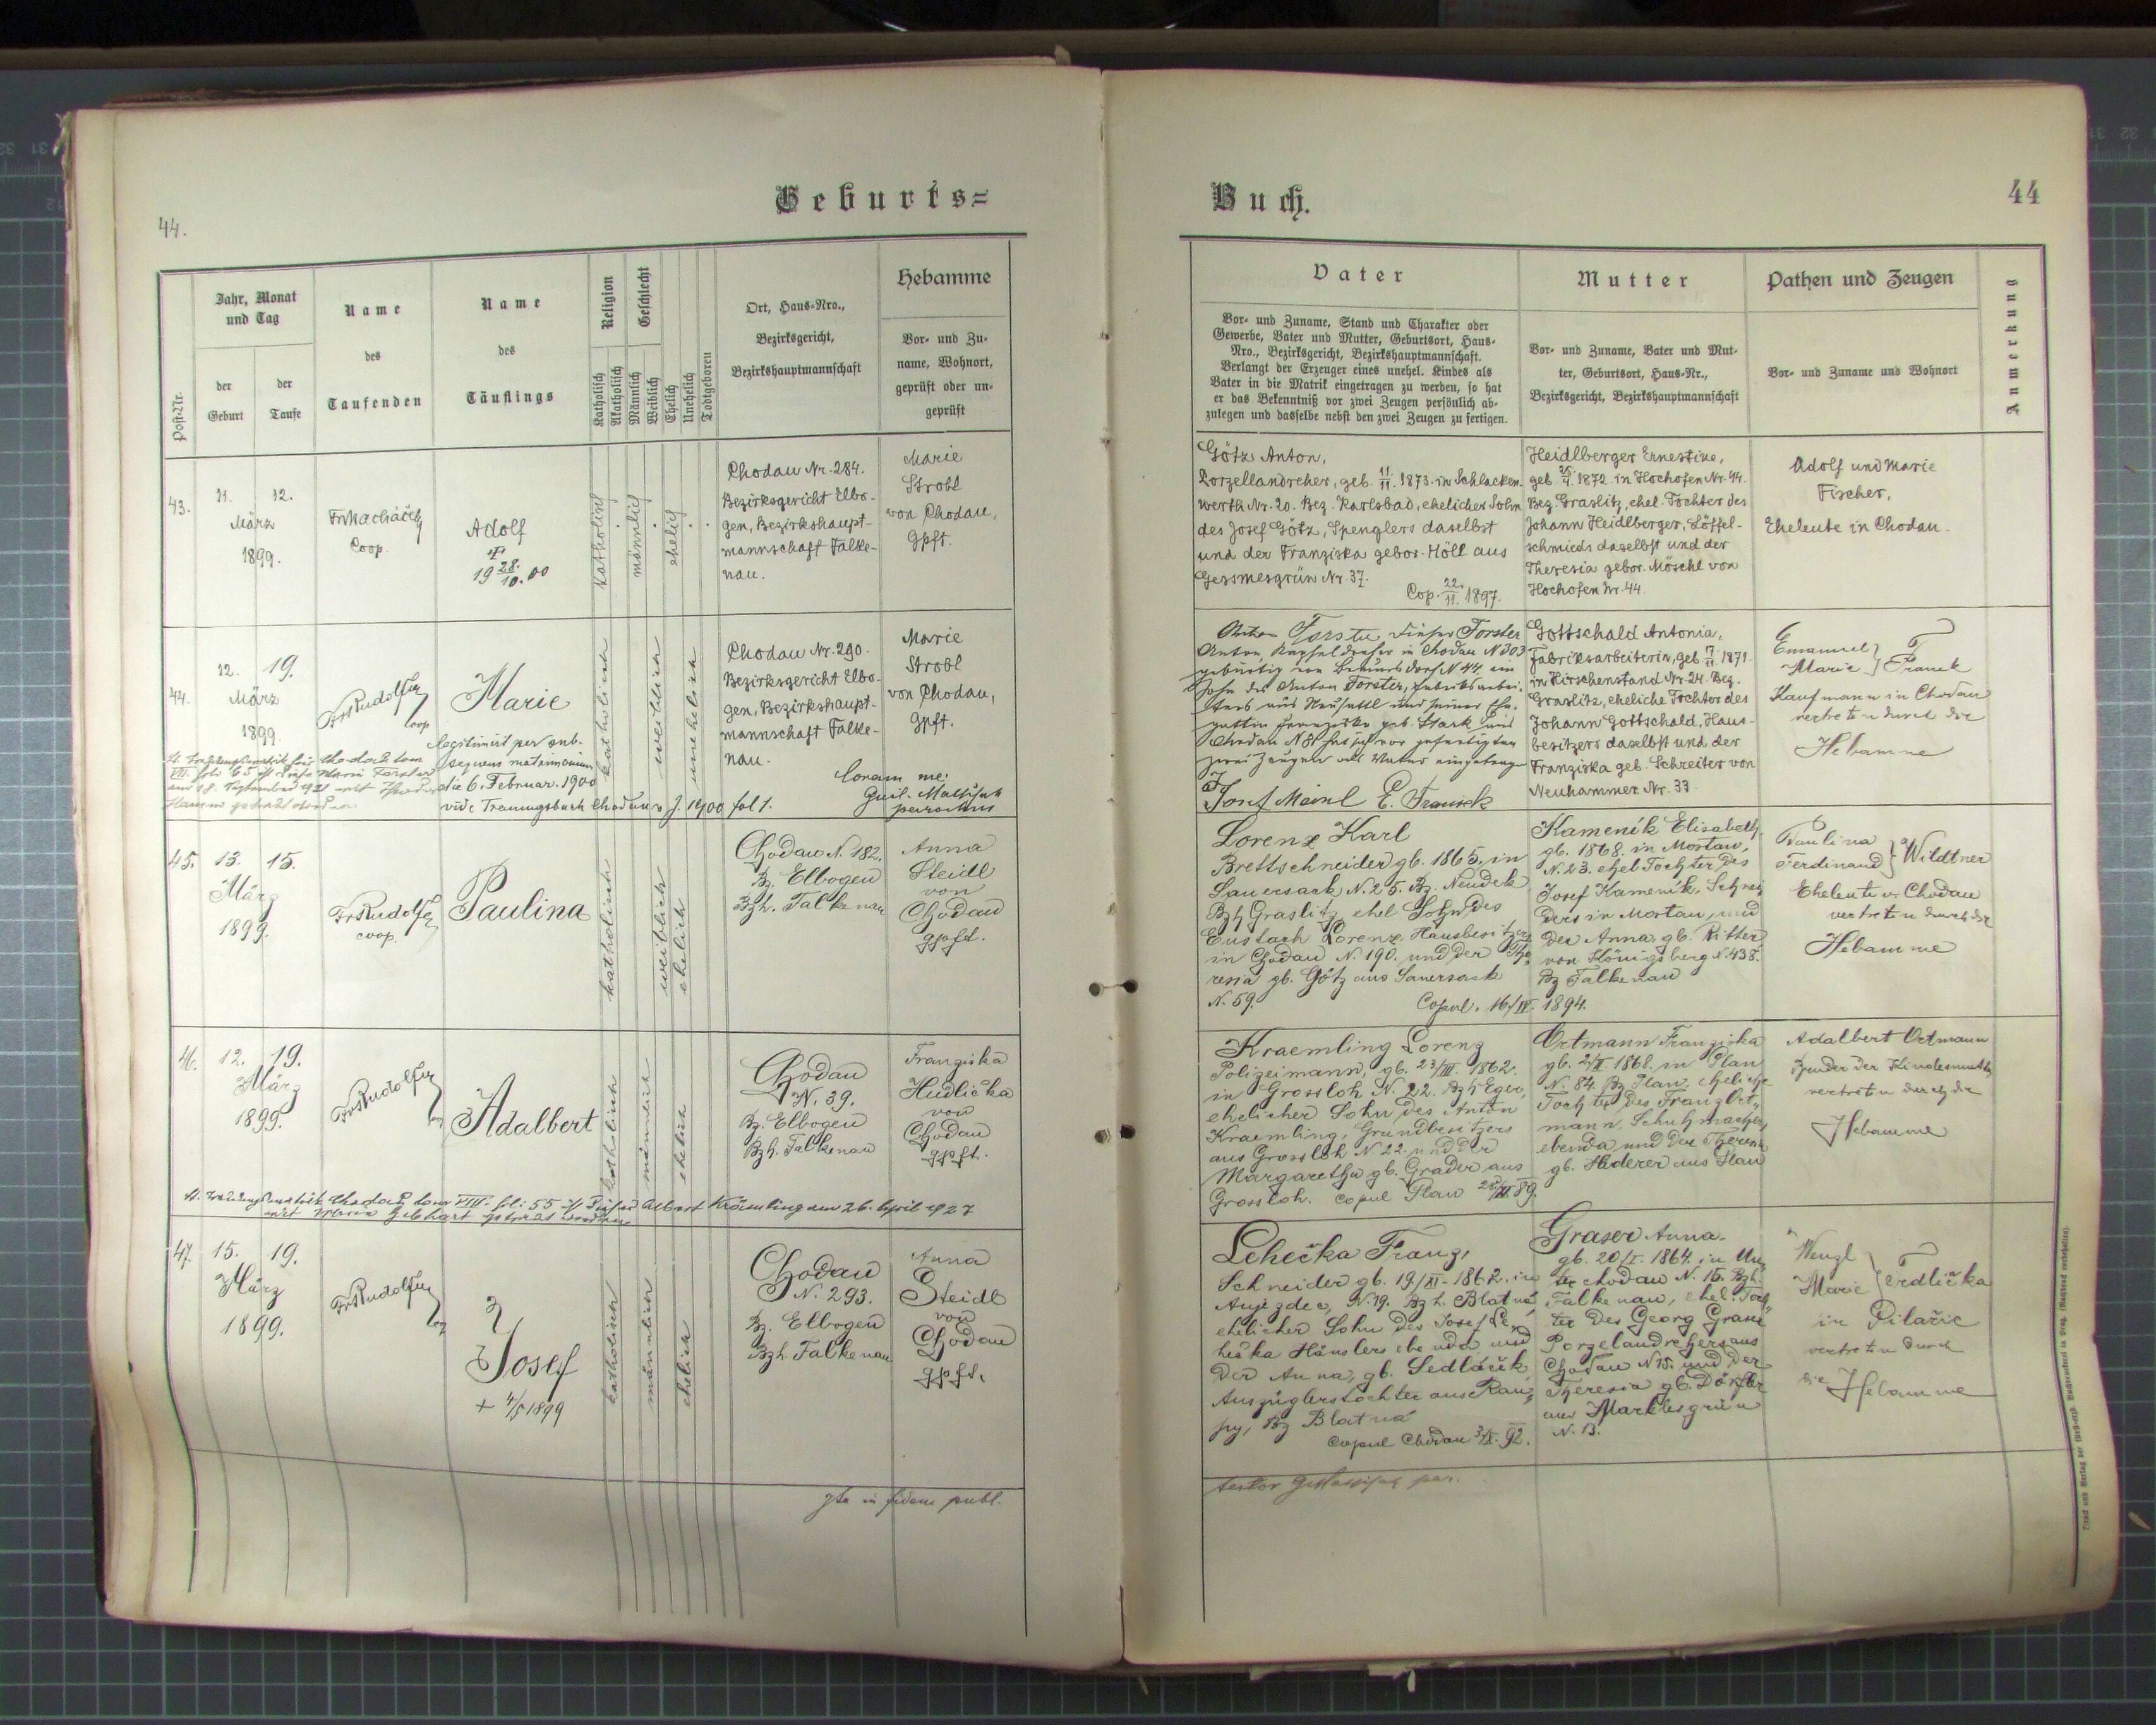 44.
Geburts=
Post-Nr.
Jahr, Monat
und Tag
der
Geburt
der
Taufe
Name
des
Taufenden
Name
des
Täuflings
Religion
Katholisch
Akatholisch
Geschlecht
Männlich
Weiblich
Ehelich
Unehelich
Todtgeboren
Ort, Haus-Nro.,
Bezirksgericht,
Bezirkshauptmannschaft
Hebamme
Vor- und Zu-
name, Wohnort,
geprüft oder un-
geprüft
43.
11. 12.
März
1899.
Coop.
Adolf
†
19 28./10. 00
katholisch
männlich
ehelich
Chodau Nr. 284.
Bezirksgericht Elbo-
gen, Bezirkshaupt-
mannschaft Falke-
nau.
Marie
Strobl
von Chodau,
gpft.
44.
12. 19.
März
1899.
Fr. Rudolf
coop
Marie
legitimirt per sub-
sequens matrimonium
die 6. Februar. 1900
vide Trauungsbuch Chodau v J. 1900 fol 1.
katholisch
weiblich
unehelich
Chodau Nr. 290.
Bezirksgericht Elbo-
gen, Bezirkshaupt-
mannschaft Falke-
nau.
Marie
Strobl
von Chodau,
gpft.
Coram me:
45. 13. 15.
März
1899.
coop.
Paulina
katholisch
weiblich
ehelich
Chodau N. 182.
Bz. Elbogen
Bzh. Falkenau
Anna
Steidl
von
Chodau
gpft.
46. 12. 19.
März
1899.
Adalbert
katholisch
männlich
ehelich
Chodau
N. 39.
Bz. Elbogen
Bzh. Falkenau
Franziska
Hudlička
von
Chodau
gpft.
47. 15. 19.
März
1899.
Josef
+ 4/5 1899
katholisch
männlich
ehelich
Chodau
N. 293.
Bz. Elbogen
Bzh. Falkenau
Anna
Steidl
von
Chodau
gpft.
in fidem publ.
Buch.
44
Vater
Vor- und Zuname, Stand und Charakter oder
Gewerbe, Vater und Mutter, Geburtsort, Haus-
Nro., Bezirksgericht, Bezirkshauptmannschaft.
Verlangt der Erzeuger eines unehel. Kindes als
Vater in die Matrik eingetragen zu werden, so hat
er das Bekenntniß vor zwei Zeugen persönlich ab-
zulegen und dasselbe nebst den zwei Zeugen zu fertigen.
Mutter
Vor- und Zuname, Vater und Mut-
ter, Geburtsort, Haus-Nr.,
Bezirksgericht, Bezirkshauptmannschaft
Pathen und Zeugen
Vor- und Zuname und Wohnort
Anmerkung
Götz Anton,
Porzellandreher, geb. 11./11. 1873. in Schlacken-
werth Nr. 20. Bez. Karlsbad, ehelicher Sohn
des Josef Götz, Spenglers daselbst
und der Franziska gebor. Höll aus
Gessmesgrün Nr. 37.
Cop. 22./11. 1897.
Heidlberger Ernestine,
geb. 1872. in Hochofen Nr. 44.
Bez. Graslitz, ehel. Tochter des
Johann Heidlberger, Löffel-
schmieds daselbst und der
Theresia gebor. Möschl von
Hochofen Nr. 44.
Adolf und Marie
Fischer,
Eheleute in Chodau.
Anton Forster, dieser Forster
Anton Kapseldreher in Chodau N 303
Sohn des Anton Forster, Fabriksarbei-
ters aus Neusattl und seiner Ehe-
gattin Franziska geb. Stark aus
Chodau N 81 hat sich vor gefertigten
zwei Zeugen als Vater eingetragen
Josef Meinl E. Franieck
Gottschald Antonia,
Fabriksarbeiterin, geb. 17./11. 1871.
in Hirschenstand Nr. 24. Bez.
Graslitz, eheliche Tochter des
Johann Gottschald, Haus-
besitzers daselbst und der
Franziska geb. Schreiter von
Neuhammer Nr. 33.
Emanuel
Marie
Kaufmann in Chodau
vertreten durch die
Hebamme
Lorenz Karl
Brettschneider gb. 1865. in
Sauersack N. 25. Bz. Neudek
Bzh Graslitz, ehel Sohn des
Eustach Lorenz, Hausbesitzers
in Chodau N. 190. und der The-
resia gb. Götz aus Sauersack
N. 59.
Copul. 16/IV. 1894.
Kamenik Elisabeth,
gb. 1868. in Mostau,
N. 23. ehel Tochter des
Josef Kamenik, Schnei-
ders in Mostau, und
der Anna, gb. Ritter
von Königsberg N. 438.
Bz Falkenau
Paulina
Ferdinand } Wildtner
Eheleute v. Chodau
vertreten durch die
Hebamme
Kraemling Lorenz
Polizeimann, gb. 23/III. 1862.
in Grossloh N. 22. Bzh Eger,
ehelicher Sohn des Anton
Kraemling, Grundbesitzers
aus Grossloh N. 22. und der
Margaretha gb. Grader aus
Grossloh. copul Plan
Ortmann Franziska
1868. in Plan
N. 84. Bz Plan, eheliche
Tochter des Franz Ort-
mann, Schuhmachers
ebenda und der Theresia
gb. Hederer aus Plan
Adalbert Ortmann
Bruder der Kindesmutter
vertreten durch die
Hebamme
Lehečka Franz,
Schneider gb. 19/XI - 1862. in
Aujezdec, N. 19. Bzh. Blatná
ehelicher Sohn des Josef Le-
hečka Häuslers ebenda und
der Anna, gb. Sedláček
Auszüglerstochter aus
Bz Blatná
copul Chodau 3/IX. 92.
Graser Anna.
gb. 20/I. 1864. in Un-
ter chodau N. 15. Bzh.
Falkenau, ehel. Toch-
ter des Georg Graser
Porzelandrehers aus
Chodau N 15. und der
Theresia gb. Dörfler
aus Marklesgrün
N. 13.
Wenzl
Marie } Vrdlička
in
vertreten durch
die Hebamme